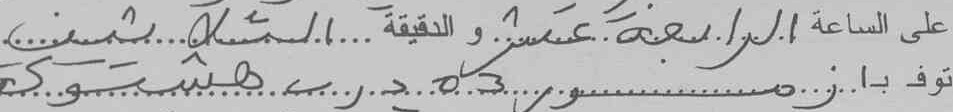 على الساعة الرابعة عشر و الدقيقة الثلاثين
توف بـ ازمور 35 درب هشتوكة